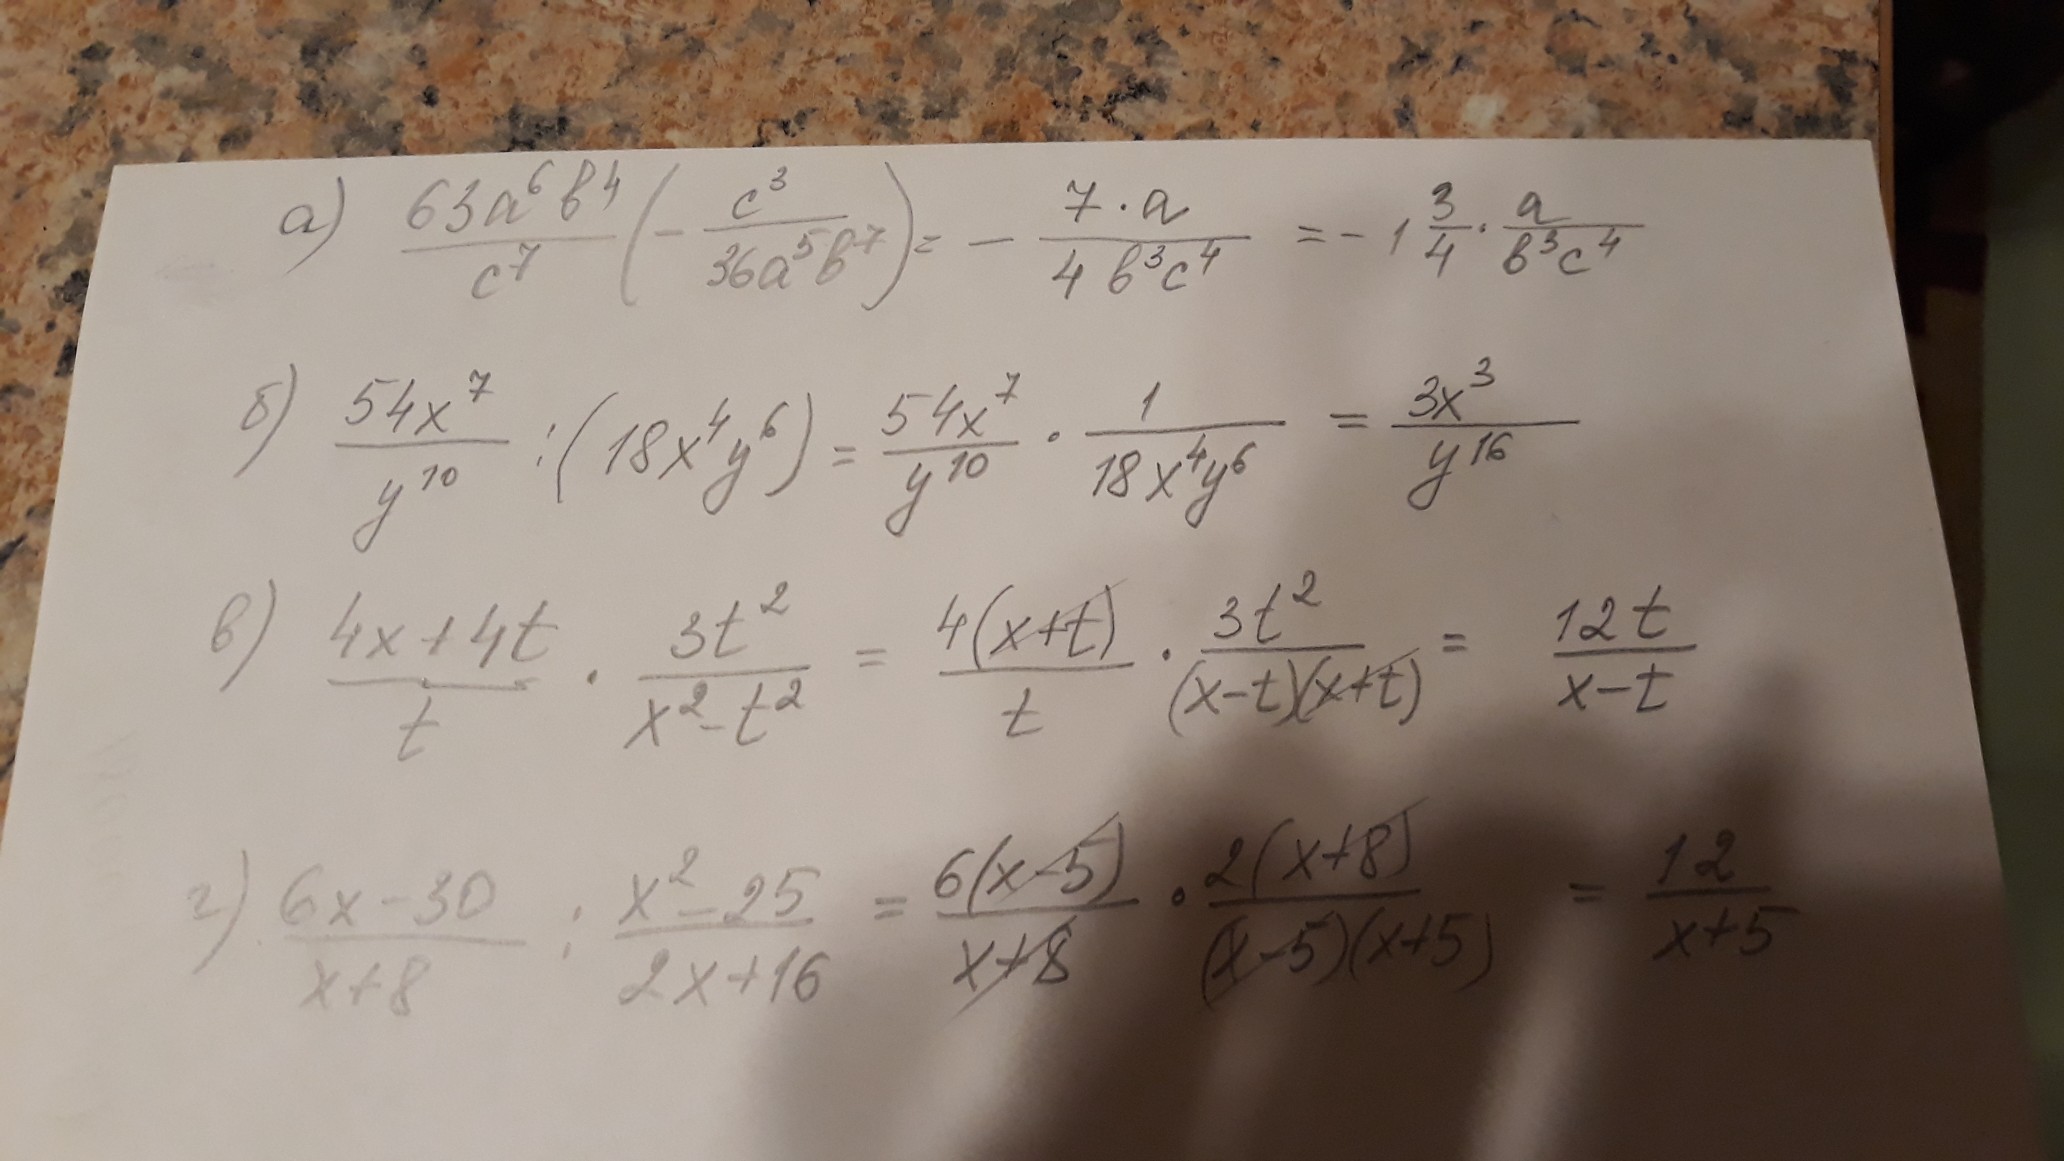 а) \frac{63a^6b^4}{c^7}\left(-\frac{c^3}{36a^5b^7}\right) = -\frac{7 \cdot a}{4b^3c^4} = -1\frac{3}{4} \cdot \frac{a}{b^3c^4}
б) \frac{54x^7}{y^{10}} : (18x^4y^6) = \frac{54x^7}{y^{10}} \cdot \frac{1}{18x^4y^6} = \frac{3x^3}{y^{16}}
в) \frac{4x+4t}{t} \cdot \frac{3t^2}{x^2-t^2} = \frac{4(x+t)}{t} \cdot \frac{3t^2}{(x-t)(x+t)} = \frac{12t}{x-t}
г) \frac{6x-30}{x+8} : \frac{x^2-25}{2x+16} = \frac{6(x-5)}{x+8} \cdot \frac{2(x+8)}{(x-5)(x+5)} = \frac{12}{x+5}